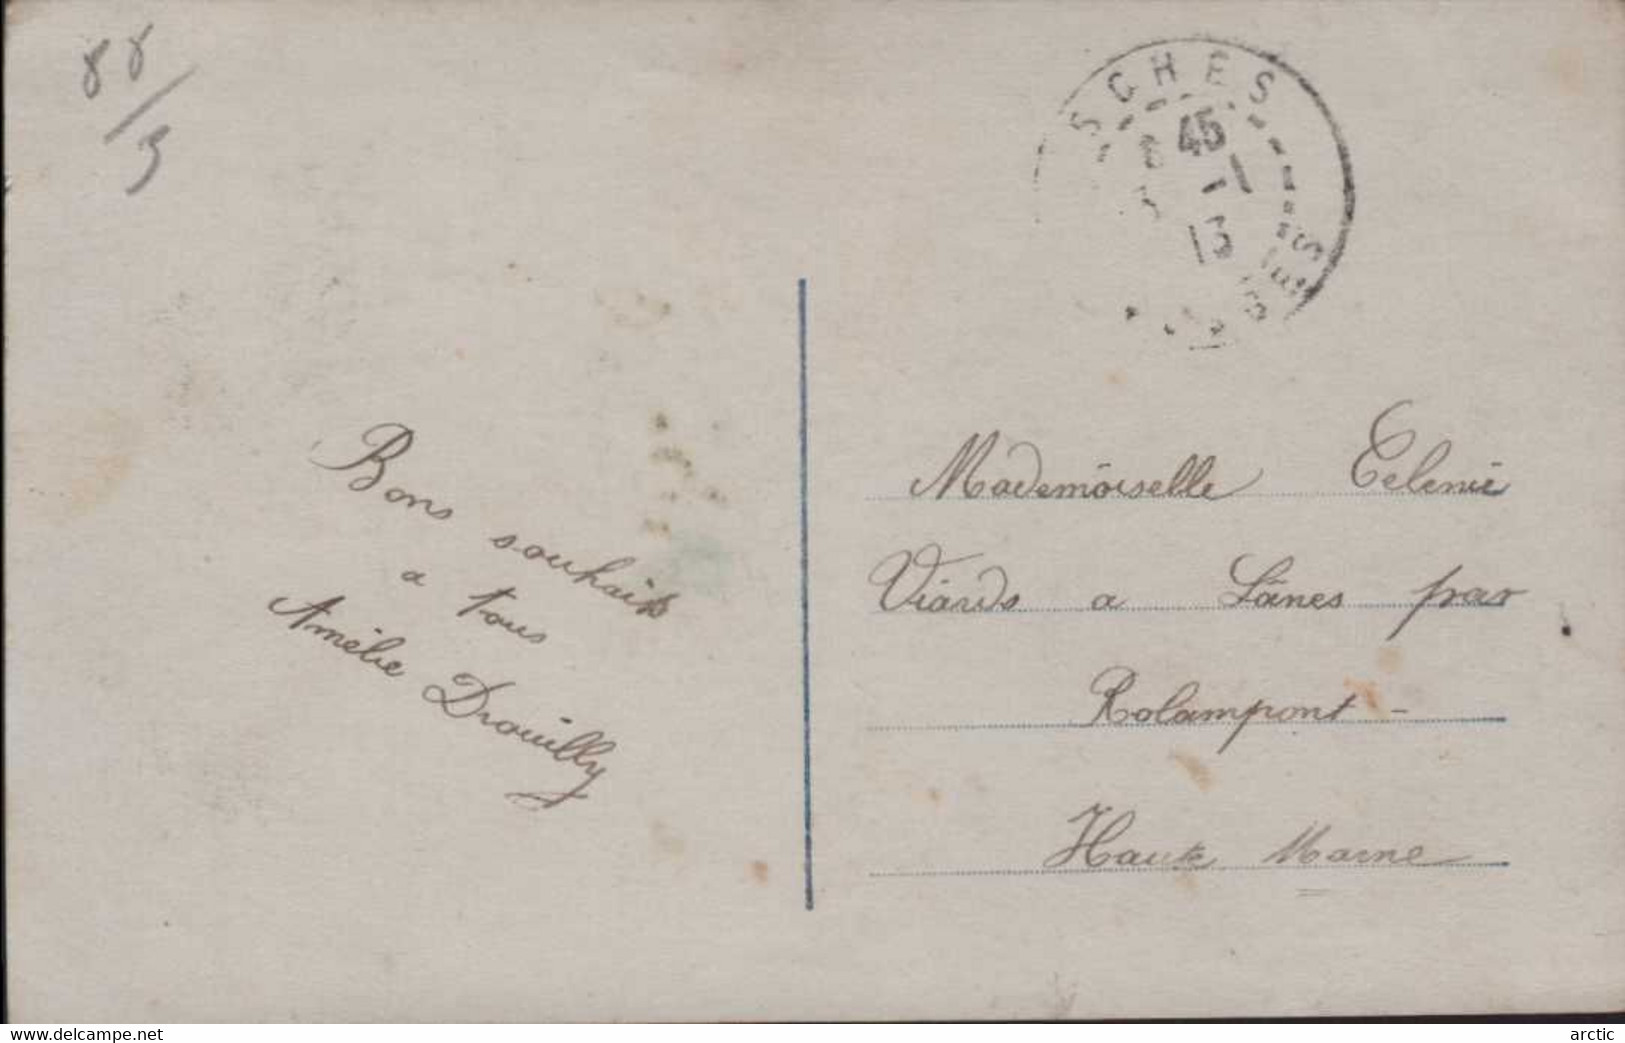 88
/3
SCHES
45
1
13
Bons souhaits
a tous
Amélie Drouilly
Mademoiselle Celenie
Viards a Lânes par
Rolampont -
Haute Marne
www.delcampe.net
arctic